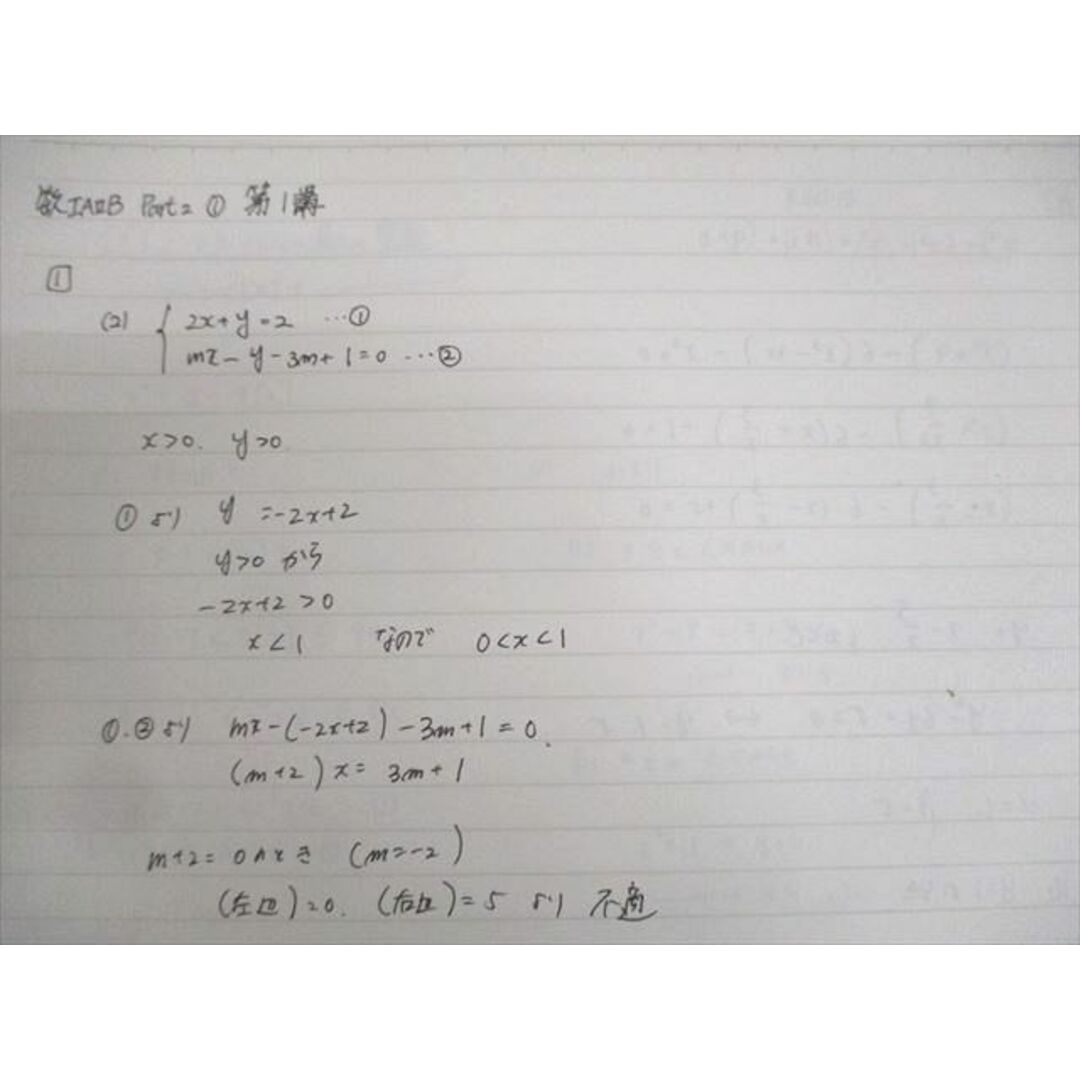 数IAIIB Part2 ① 第1講
1
(2) { 2x+y=2 …①
mx-y-3m+1=0 …②
x>0. y>0
①より y=-2x+2
y>0 から
-2x+2>0
x<1 なので 0<x<1
①.②より mx-(-2x+2)-3m+1=0.
(m+2)x=3m+1
m+2=0のとき (m=-2)
(左辺)=0. (右辺)=5 より 不適